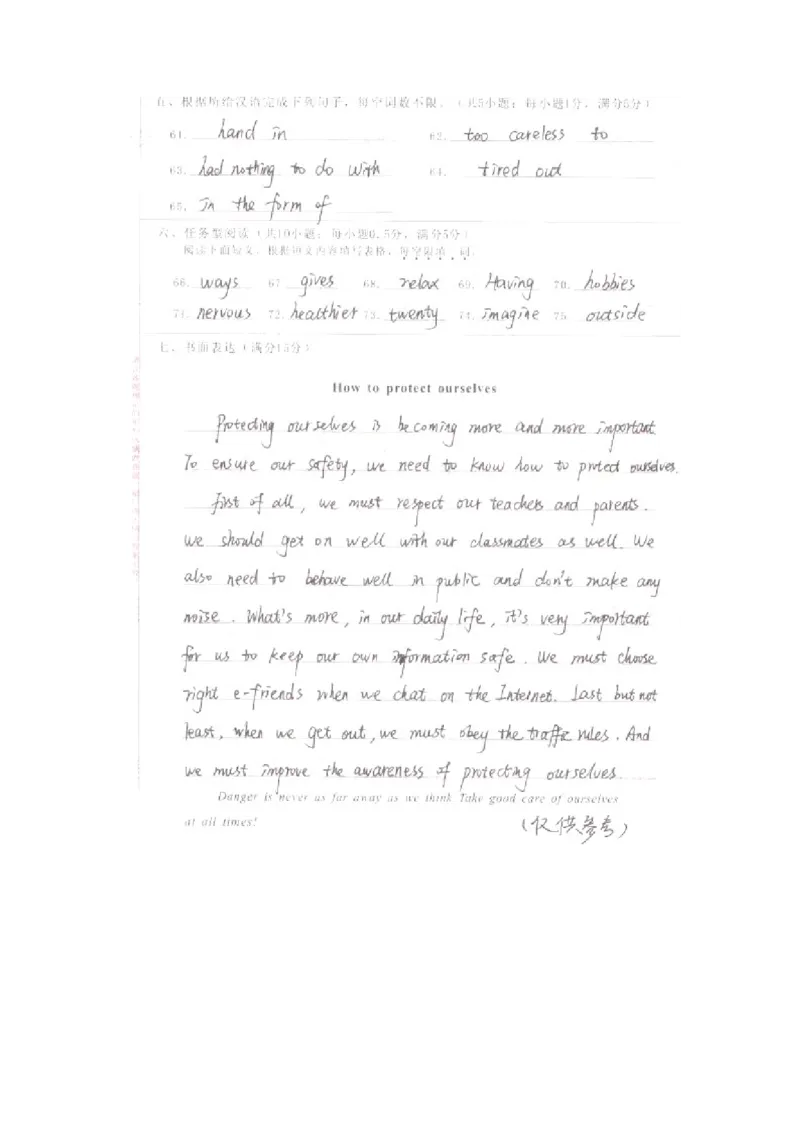 五、根据所给汉语完成下列句子，每空词数不限。（共5小题；每小题1分，满分5分）
61. hand in 62. too careless to
63. had nothing to do with 64. tired out
65. in the form of
六、任务型阅读（共10小题；每小题0.5分，满分5分）
阅读下面短文，根据短文内容填写表格，每空限填一词。
66. ways 67 gives 68. relax 69. Having 70. hobbies
71. nervous 72. healthier 73. twenty 74. imagine 75. outside
七、书面表达（满分15分）
How to protect ourselves
Protecting ourselves is becoming more and more important
To ensure our safety, we need to know how to protect ourselves.
First of all, we must respect our teachers and parents.
We should get on well with our classmates as well. We
also need to behave well in public and don't make any
noise. What's more, in our daily life, it's very important
for us to keep our own information safe. We must choose
right e-friends when we chat on the Internet. Last but not
least, when we get out, we must obey the traffic rules. And
we must improve the awareness of protecting ourselves.
Danger is never as far away as we think Take good care of ourselves
at all times!
（仅供参考）